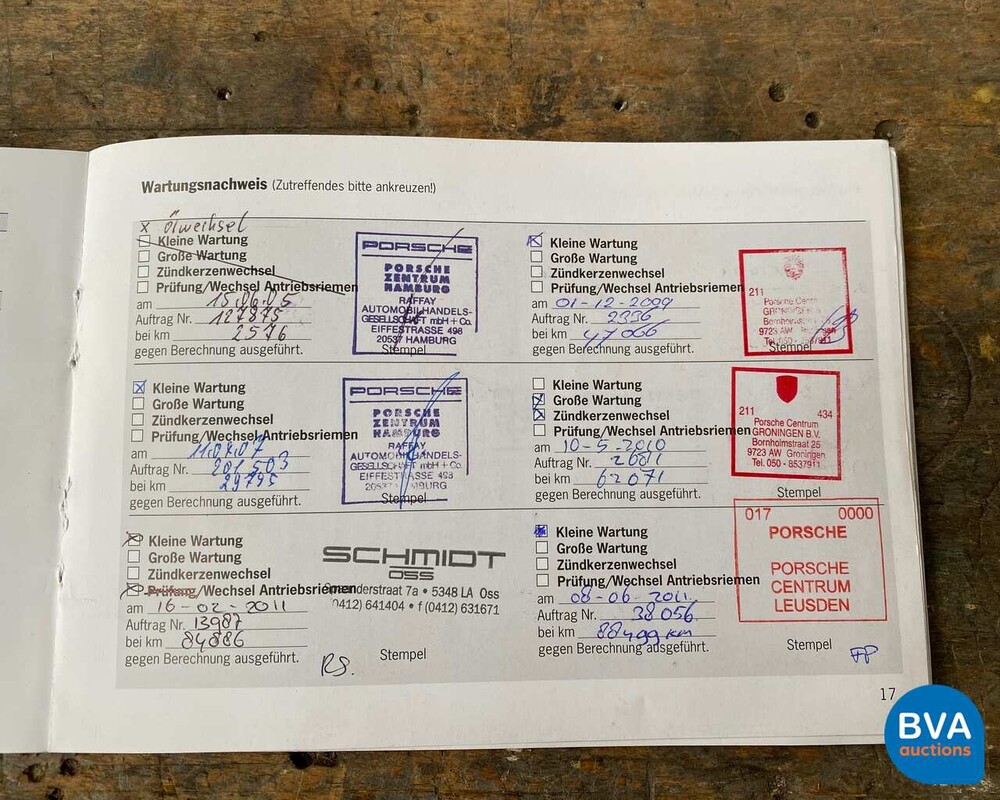 Wartungsnachweis (Zutreffendes bitte ankreuzen!)
x Ölwechsel
Kleine Wartung
Große Wartung
Zündkerzenwechsel
Prüfung/Wechsel Antriebsriemen
am 15.06.05
Auftrag Nr. 127875
bei km 2576
gegen Berechnung ausgeführt.
PORSCHE
PORSCHE
ZENTRUM
HAMBURG
RAFFAY
AUTOMOBILHANDELS-
GESELLSCHAFT mbH + Co.
EIFFESTRASSE 498
20537 HAMBURG
Stempel
x Kleine Wartung
Große Wartung
Zündkerzenwechsel
Prüfung/Wechsel Antriebsriemen
am 01-12-2009
Auftrag Nr. 2336
bei km 47066
gegen Berechnung ausgeführt.
211
Porsche Centr
GRONINGEN
9723 AW
Tel. 050 -
Stempel
x Kleine Wartung
Große Wartung
Zündkerzenwechsel
Prüfung/Wechsel Antriebsriemen
am
Auftrag Nr. 201503
bei km 29795
gegen Berechnung ausgeführt.
PORSCHE
PORSCHE
ZENTRUM
HAMBURG
RAFFAY
AUTOMOBILHANDELS-
GESELLSCHAFT mbH + Co.
EIFFESTRASSE 498
20537 HAMBURG
Stempel
Kleine Wartung
x Große Wartung
x Zündkerzenwechsel
Prüfung/Wechsel Antriebsriemen
am 10-5-2010
Auftrag Nr. 2681
bei km 62071
gegen Berechnung ausgeführt.
211 434
Porsche Centrum
GRONINGEN B.V.
Bornholmstraat 25
9723 AW Groningen
Tel. 050 - 8537911
Stempel
x Kleine Wartung
Große Wartung
Zündkerzenwechsel
x Prüfung/Wechsel Antriebsriemen
am 16-02-2011
Auftrag Nr. 13987
bei km 84886
gegen Berechnung ausgeführt.
SCHMIDT
OSS
nderstraat 7a • 5348 LA Oss
0412) 641404 • f (0412) 631671
RS.
Stempel
x Kleine Wartung
Große Wartung
Zündkerzenwechsel
Prüfung/Wechsel Antriebsriemen
am 08-06-2011.
Auftrag Nr. 38056
bei km 88499 km
gegen Berechnung ausgeführt.
017 0000
PORSCHE
PORSCHE
CENTRUM
LEUSDEN
Stempel
17
BVA
auctions